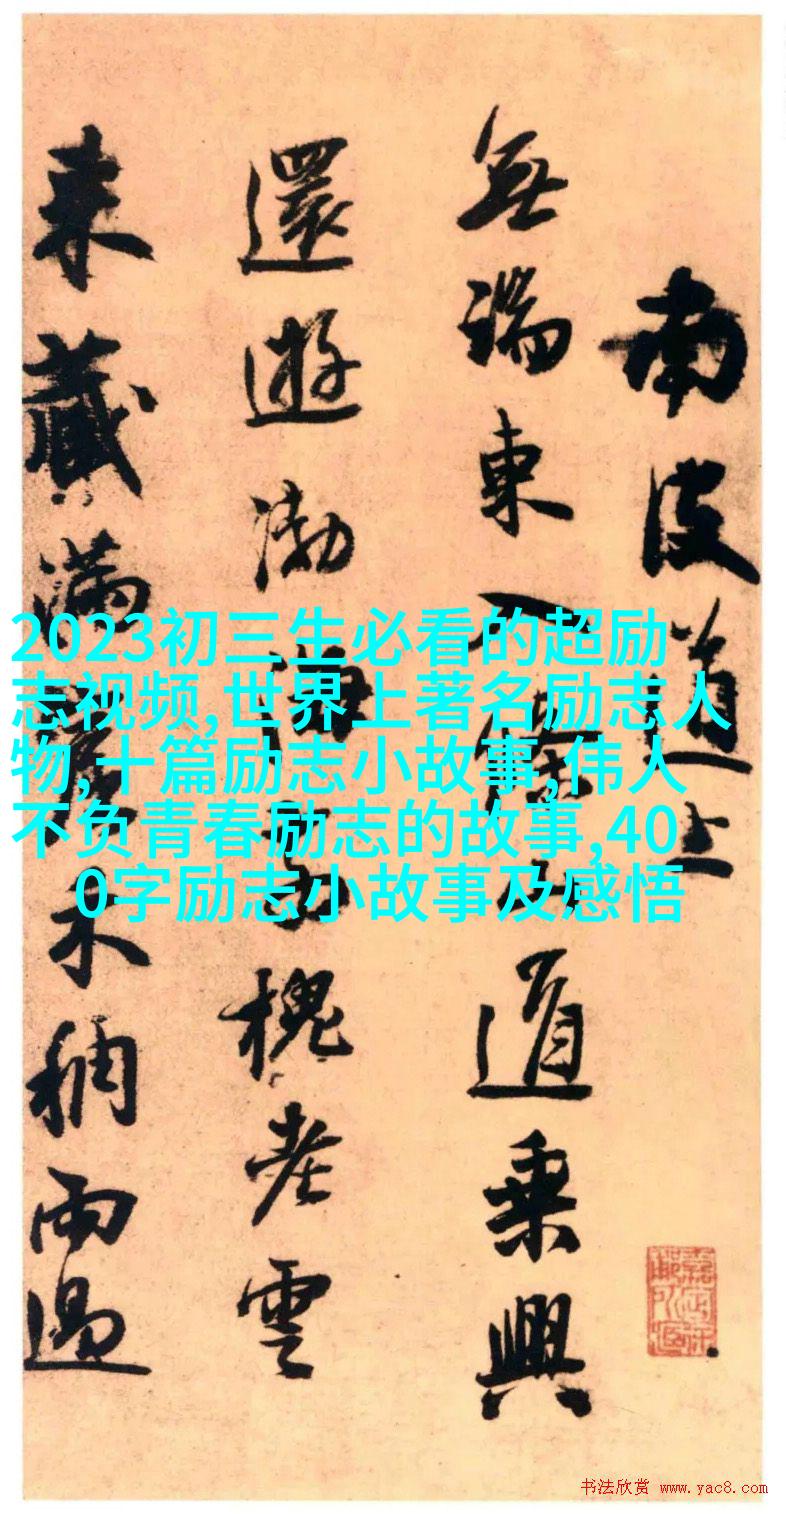 南皮道上
無端東入道乘興
還遊渤海槐老雲
来藏满木稍雨過
2023初三生必看的超励
志视频,世界上著名励志人
物,十篇励志小故事,伟人
不负青春励志的故事,40
0字励志小故事及感悟
书法欣赏 www.yac8.com